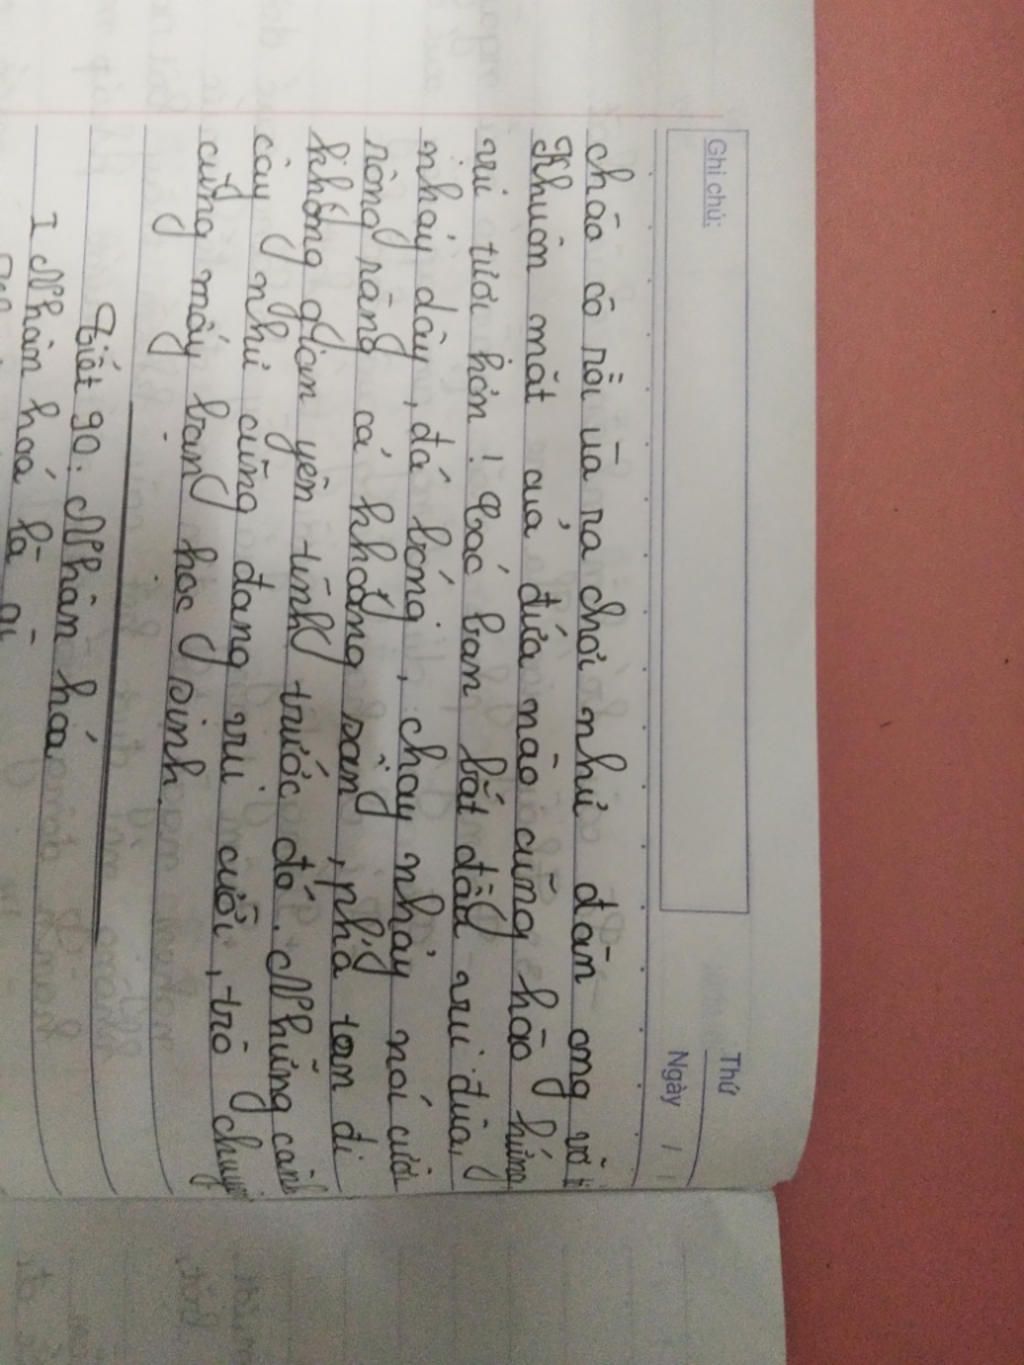 Ghi chú:
Thứ
Ngày / /
chào cô rồi ùa ra chơi như đàn ong vỡ
Khuôn mặt của đứa nào cũng hào hứng
vui tươi hơn! Các bạn bắt đầu vui đùa,
nhảy dây, đá bóng, chạy nhảy nói cười
rộng ràng cả khoảng sân, phá tan đi
không gian yên tĩnh trước đó. Những cành
cây như cũng đang vui cười, trò chuyện
cùng mấy bạn học sinh.
Tiết 90: Nhân hóa
I Nhân hoá là gì